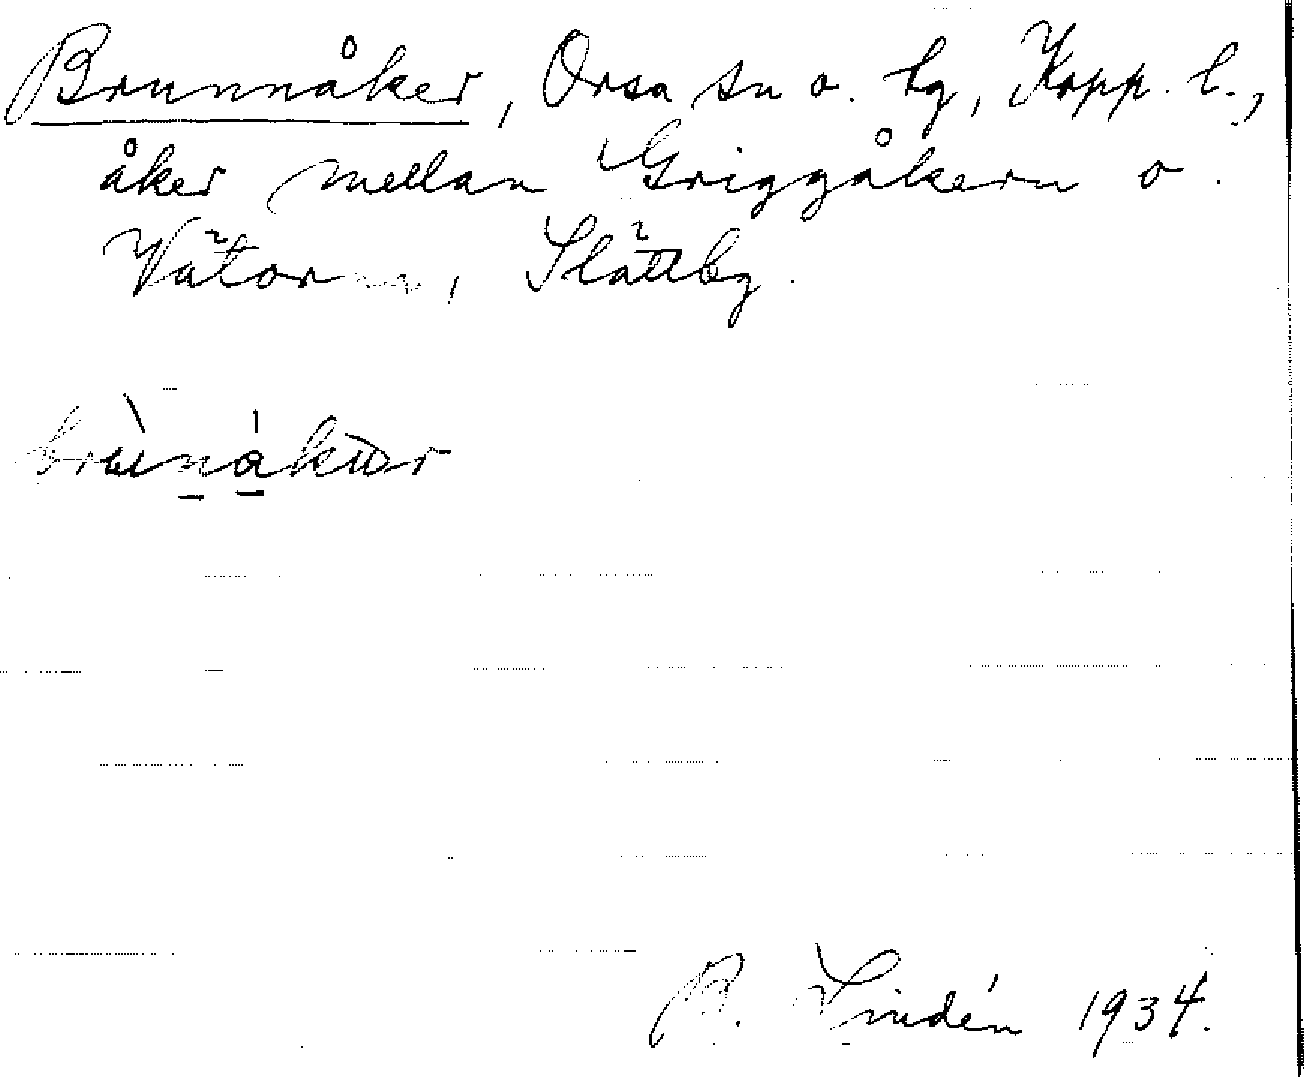 Brunnåker, Orsa sn o. tg, Kopp. l.,
åker mellan Griggåkern o.
Vätorna, Slättbg.
brùnákär
B. Lindén 1934.